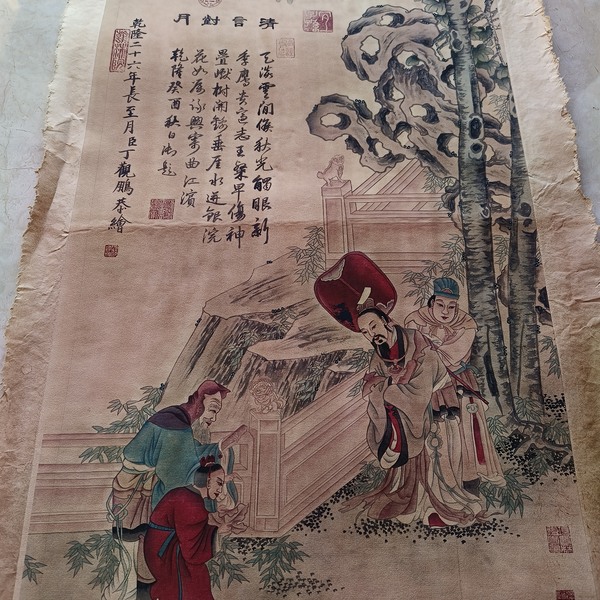 清言對月
天淡雲閒候秋光觸眼新
季鷹去意志王粲早傷神
疊巘樹開錦垂崖水迸銀浣
花如屬詠興寄曲江濱
乾隆癸酉秋日御題
乾隆二十六年長至月臣丁觀鵬恭繪